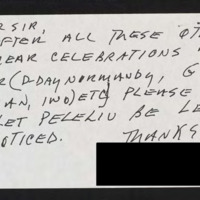 R SIR,
AFTER ALL THESE
YEAR CELEBRATIONS
R (D-DAY NORMANDY, G
AN, IWO) ETC PLEASE
LET PELELIU BE LE
NOTICED.
THANKS